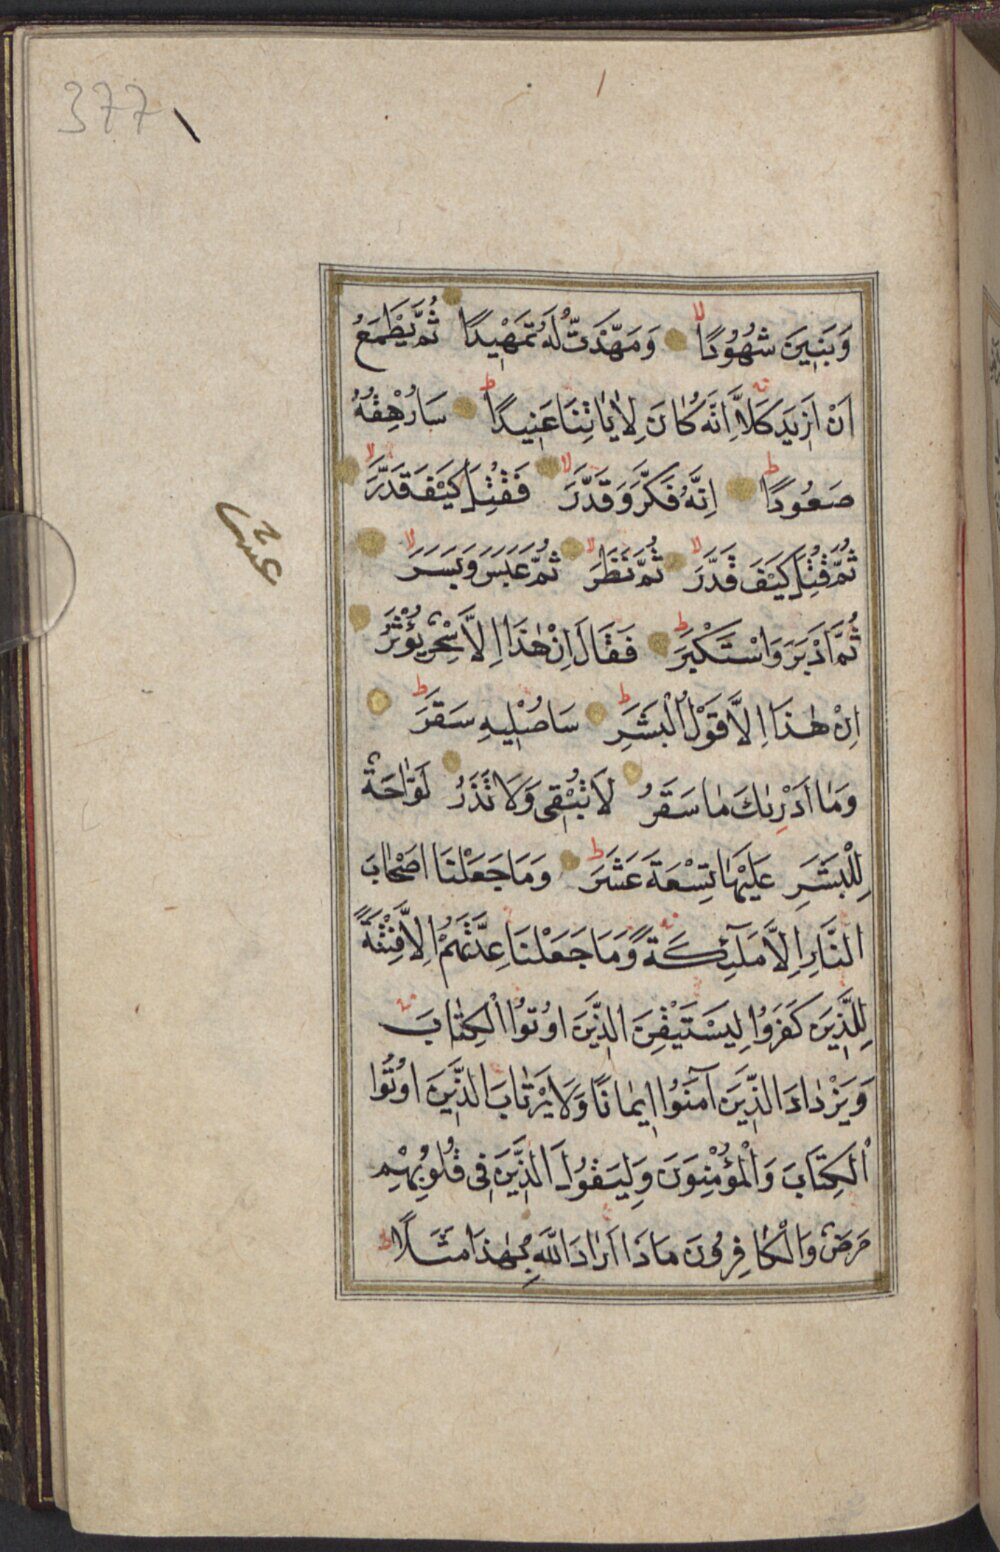 377
وَبَنِينَ شُهُودًا وَمَهَّدْتُ لَهُ تَمْهِيدًا ثُمَّ يَطْمَعُ
اَنْ اَزِيدَ كَلَّا اِنَّهُ كَانَ لِاٰيَاتِنَا عَنِيدًا سَاُرْهِقُهُ
صَعُودًا اِنَّهُ فَكَّرَ وَقَدَّرَ فَقُتِلَ كَيْفَ قَدَّرَ
ثُمَّ قُتِلَ كَيْفَ قَدَّرَ ثُمَّ نَظَرَ ثُمَّ عَبَسَ وَبَسَرَ
ثُمَّ اَدْبَرَ وَاسْتَكْبَرَ فَقَالَ اِنْ هٰذَا اِلَّا سِحْرٌ يُؤْثَرُ
اِنْ هٰذَا اِلَّا قَوْلُ الْبَشَرِ سَاُصْلِيهِ سَقَرَ
وَمَا اَدْرٰيكَ مَا سَقَرُ لَا تُبْقِى وَلَا تَذَرُ لَوَّاحَةٌ
لِلْبَشَرِ عَلَيْهَا تِسْعَةَ عَشَرَ وَمَا جَعَلْنَا اَصْحَابَ
النَّارِ اِلَّا مَلٰٓئِكَةً وَمَا جَعَلْنَا عِدَّتَهُمْ اِلَّا فِتْنَةً
لِلَّذِينَ كَفَرُوا لِيَسْتَيْقِنَ الَّذِينَ اُوتُوا الْكِتَابَ
وَيَزْدَادَ الَّذِينَ آمَنُوا اِيمَانًا وَلَا يَرْتَابَ الَّذِينَ اُوتُوا
الْكِتَابَ وَالْمُؤْمِنُونَ وَلِيَقُولَ الَّذِينَ فِى قُلُوبِهِمْ
مَرَضٌ وَالْكَافِرُونَ مَاذَا اَرَادَ اللّٰهُ بِهٰذَا مَثَلًا